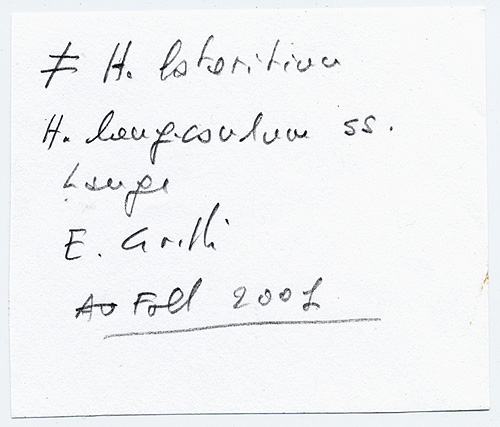 ≠ H. lateritium
H. longicaudum ss.
Lange
E. Grilli
Fall 2001